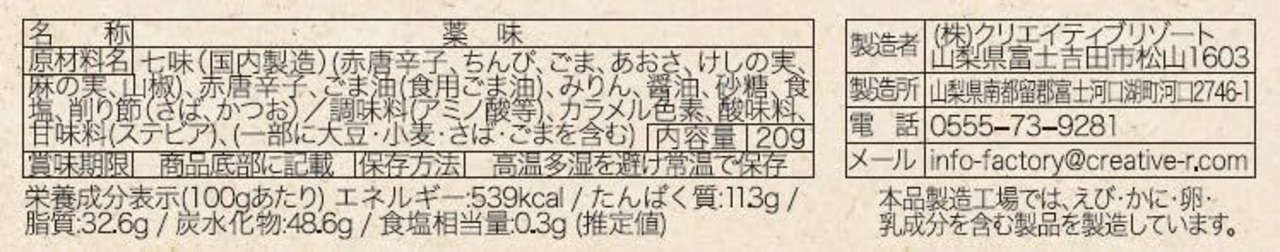 名 称 薬 味
原材料名 七味(国内製造)(赤唐辛子、ちんぴ、ごま、あおさ、けしの実、
麻の実、山椒)、赤唐辛子、ごま油(食用ごま油)、みりん、醤油、砂糖、食
塩、削り節(さば、かつお)/調味料(アミノ酸等)、カラメル色素、酸味料、
甘味料(ステビア)、(一部に大豆・小麦・さば・ごまを含む) 内容量 20g
賞味期限 商品底部に記載 保存方法 高温多湿を避け常温で保存
栄養成分表示(100gあたり) エネルギー:539kcal / たんぱく質:11.3g /
脂質:32.6g / 炭水化物:48.6g / 食塩相当量:0.3g (推定値)
製造者 (株)クリエイティブリゾート
山梨県富士吉田市松山1603
製造所 山梨県南都留郡富士河口湖町河口2746-1
電 話 0555-73-9281
メール info-factory@creative-r.com
本品製造工場では、えび・かに・卵・
乳成分を含む製品を製造しています。